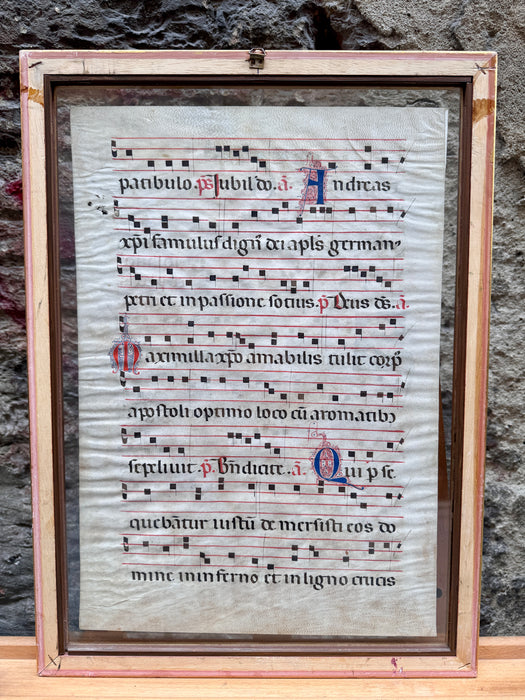 patibulo. ps Jubil do. a. Andreas
xpi famulus dign dei apls german
petri et in passione socius. p Deus ds. a.
Maximilla xpo amabilis tulit corp
apostoli optimo loco cu aromatib
sepeliuit. p. Bndicite. a. Qui pse
quebatur iustu demersisti eos do
mine in inferno et in ligno crucis